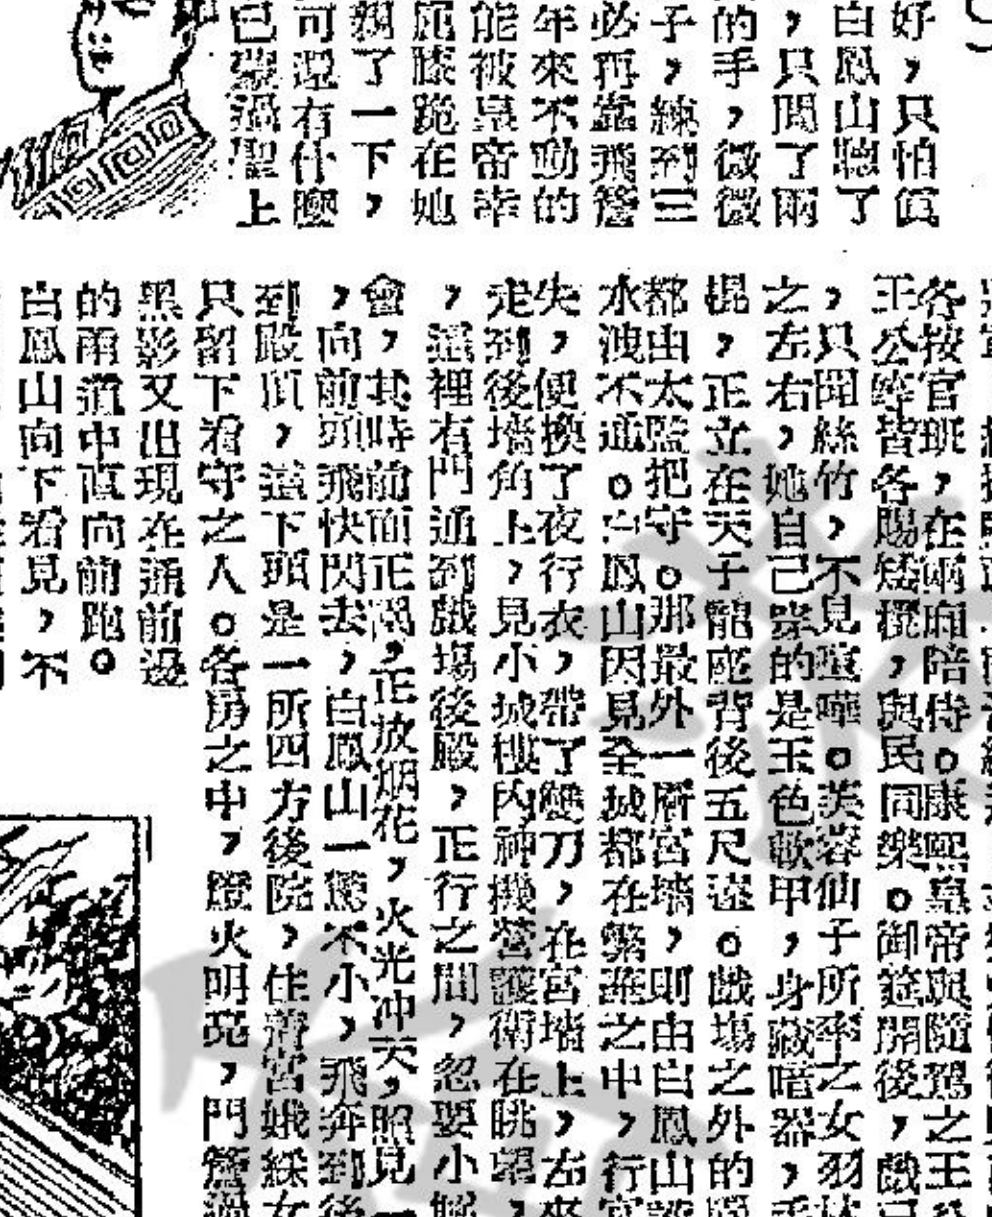 好，只怕值
白鳳山聽了
，只聞了兩
的手，微微
子，練到三
必再靠飛簷
年來不動的
能被皇帝幸
膝跪在她
親了一下，
可還有什麼
已蒙過聖上
各按官班，在兩廂陪侍。康熙皇帝與隨駕之王公
王公等皆各賜矮櫈，與民同樂。御筵開後，戲已
，只聞絲竹，不見喧嘩。芙蓉仙子所率之女羽林
之左右，她自己穿的是玉色軟甲，身藏暗器，手
棍，正立在天子龍座背後五尺遠。戲場之外的
都由太監把守。那最外一層宮墻，則由白鳳山
水洩不通。白鳳山因見全城都在警邏之中，行宮
失，便換了夜行衣，帶了雙刀，在宮墻上，右來
走到後墻角上，見小城樓內神機營護衛在眺望，
，這裡有門通到戲場後殿，正行之間，忽要小解
會，其時前面正鬧，正放烟花，火光冲天，照見一
，向前頭飛快閃去，白鳳山一驚不小，飛奔到後
到殿頂，這下頭是一所四方後院，住着宮娥綵女
只留下看守之人。各房之中，燈火明亮，門簷
黑影又出現在通前邊
的甬道中直向前跑。
白鳳山向下看見，不